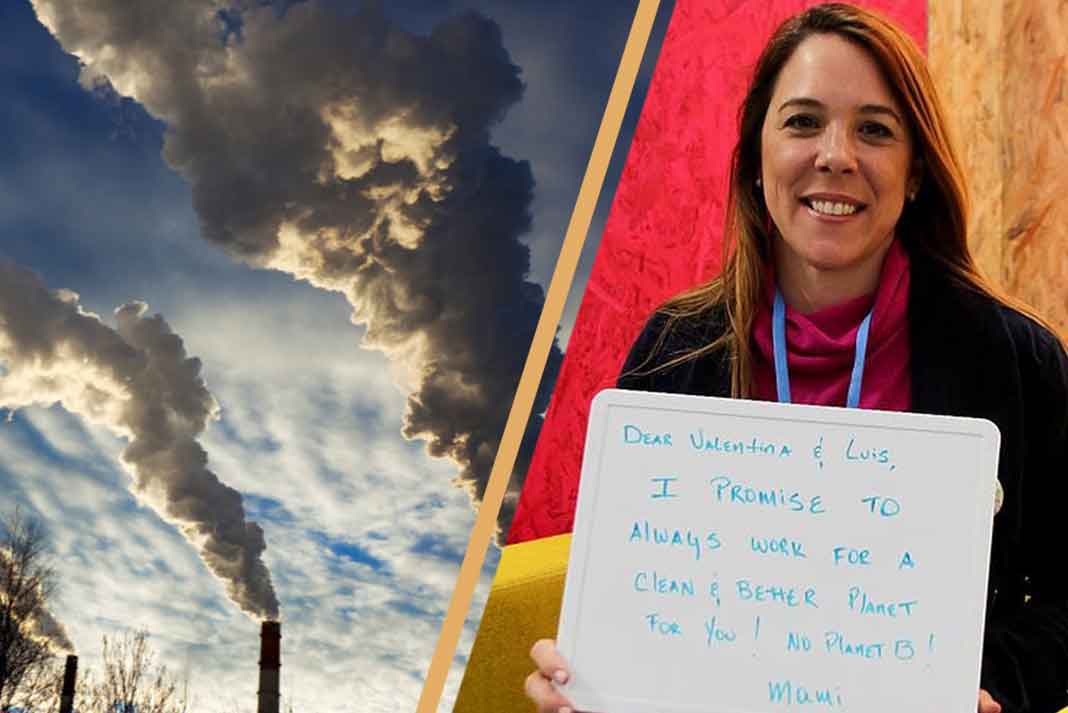 DEAR VALENTINA & LUIS,
I PROMISE TO
ALWAYS WORK FOR A
CLEAN & BETTER PLANET
FOR YOU! NO PLANET B!
Mami